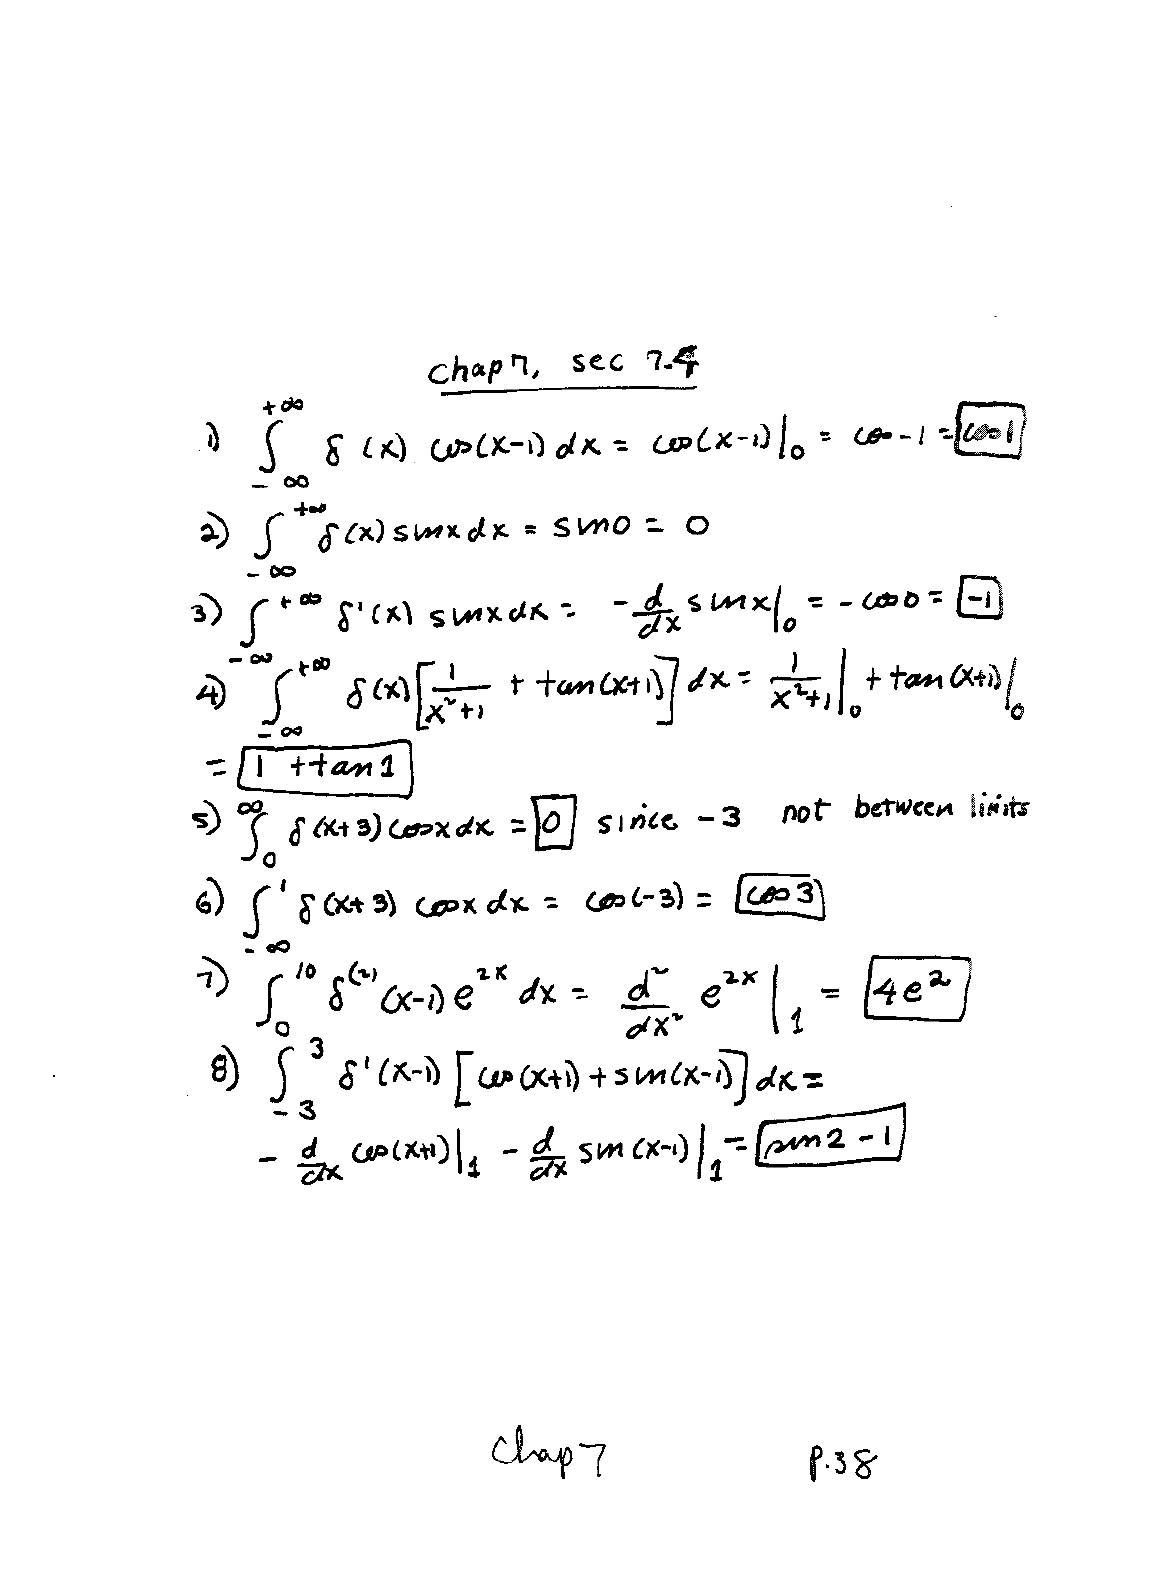 Chap 7, sec 7.4
1) ∫_{-∞}^{+∞} δ(x) cos(x-1) dx = cos(x-1)|_0 = cos -1 = cos 1
2) ∫_{-∞}^{+∞} δ(x) sin x dx = sin 0 = 0
3) ∫_{-∞}^{+∞} δ'(x) sin x dx = -d/dx sin x|_0 = -cos 0 = -1
4) ∫_{-∞}^{+∞} δ(x) [1/(x²+1) + tan(x+1)] dx = 1/(x²+1)|_0 + tan(x+1)|_0
= 1 + tan 1
5) ∫_0^∞ δ(x+3) cos x dx = 0 since -3 not between limits
6) ∫_{-∞}^1 δ(x+3) cos x dx = cos(-3) = cos 3
7) ∫_0^{10} δ^{(2)}(x-1) e^{2x} dx = d²/dx² e^{2x}|_1 = 4e²
8) ∫_{-3}^3 δ'(x-1) [cos(x+1) + sin(x-1)] dx =
- d/dx cos(x+1)|_1 - d/dx sin(x-1)|_1 = sin 2 - 1
Chap 7 P.38